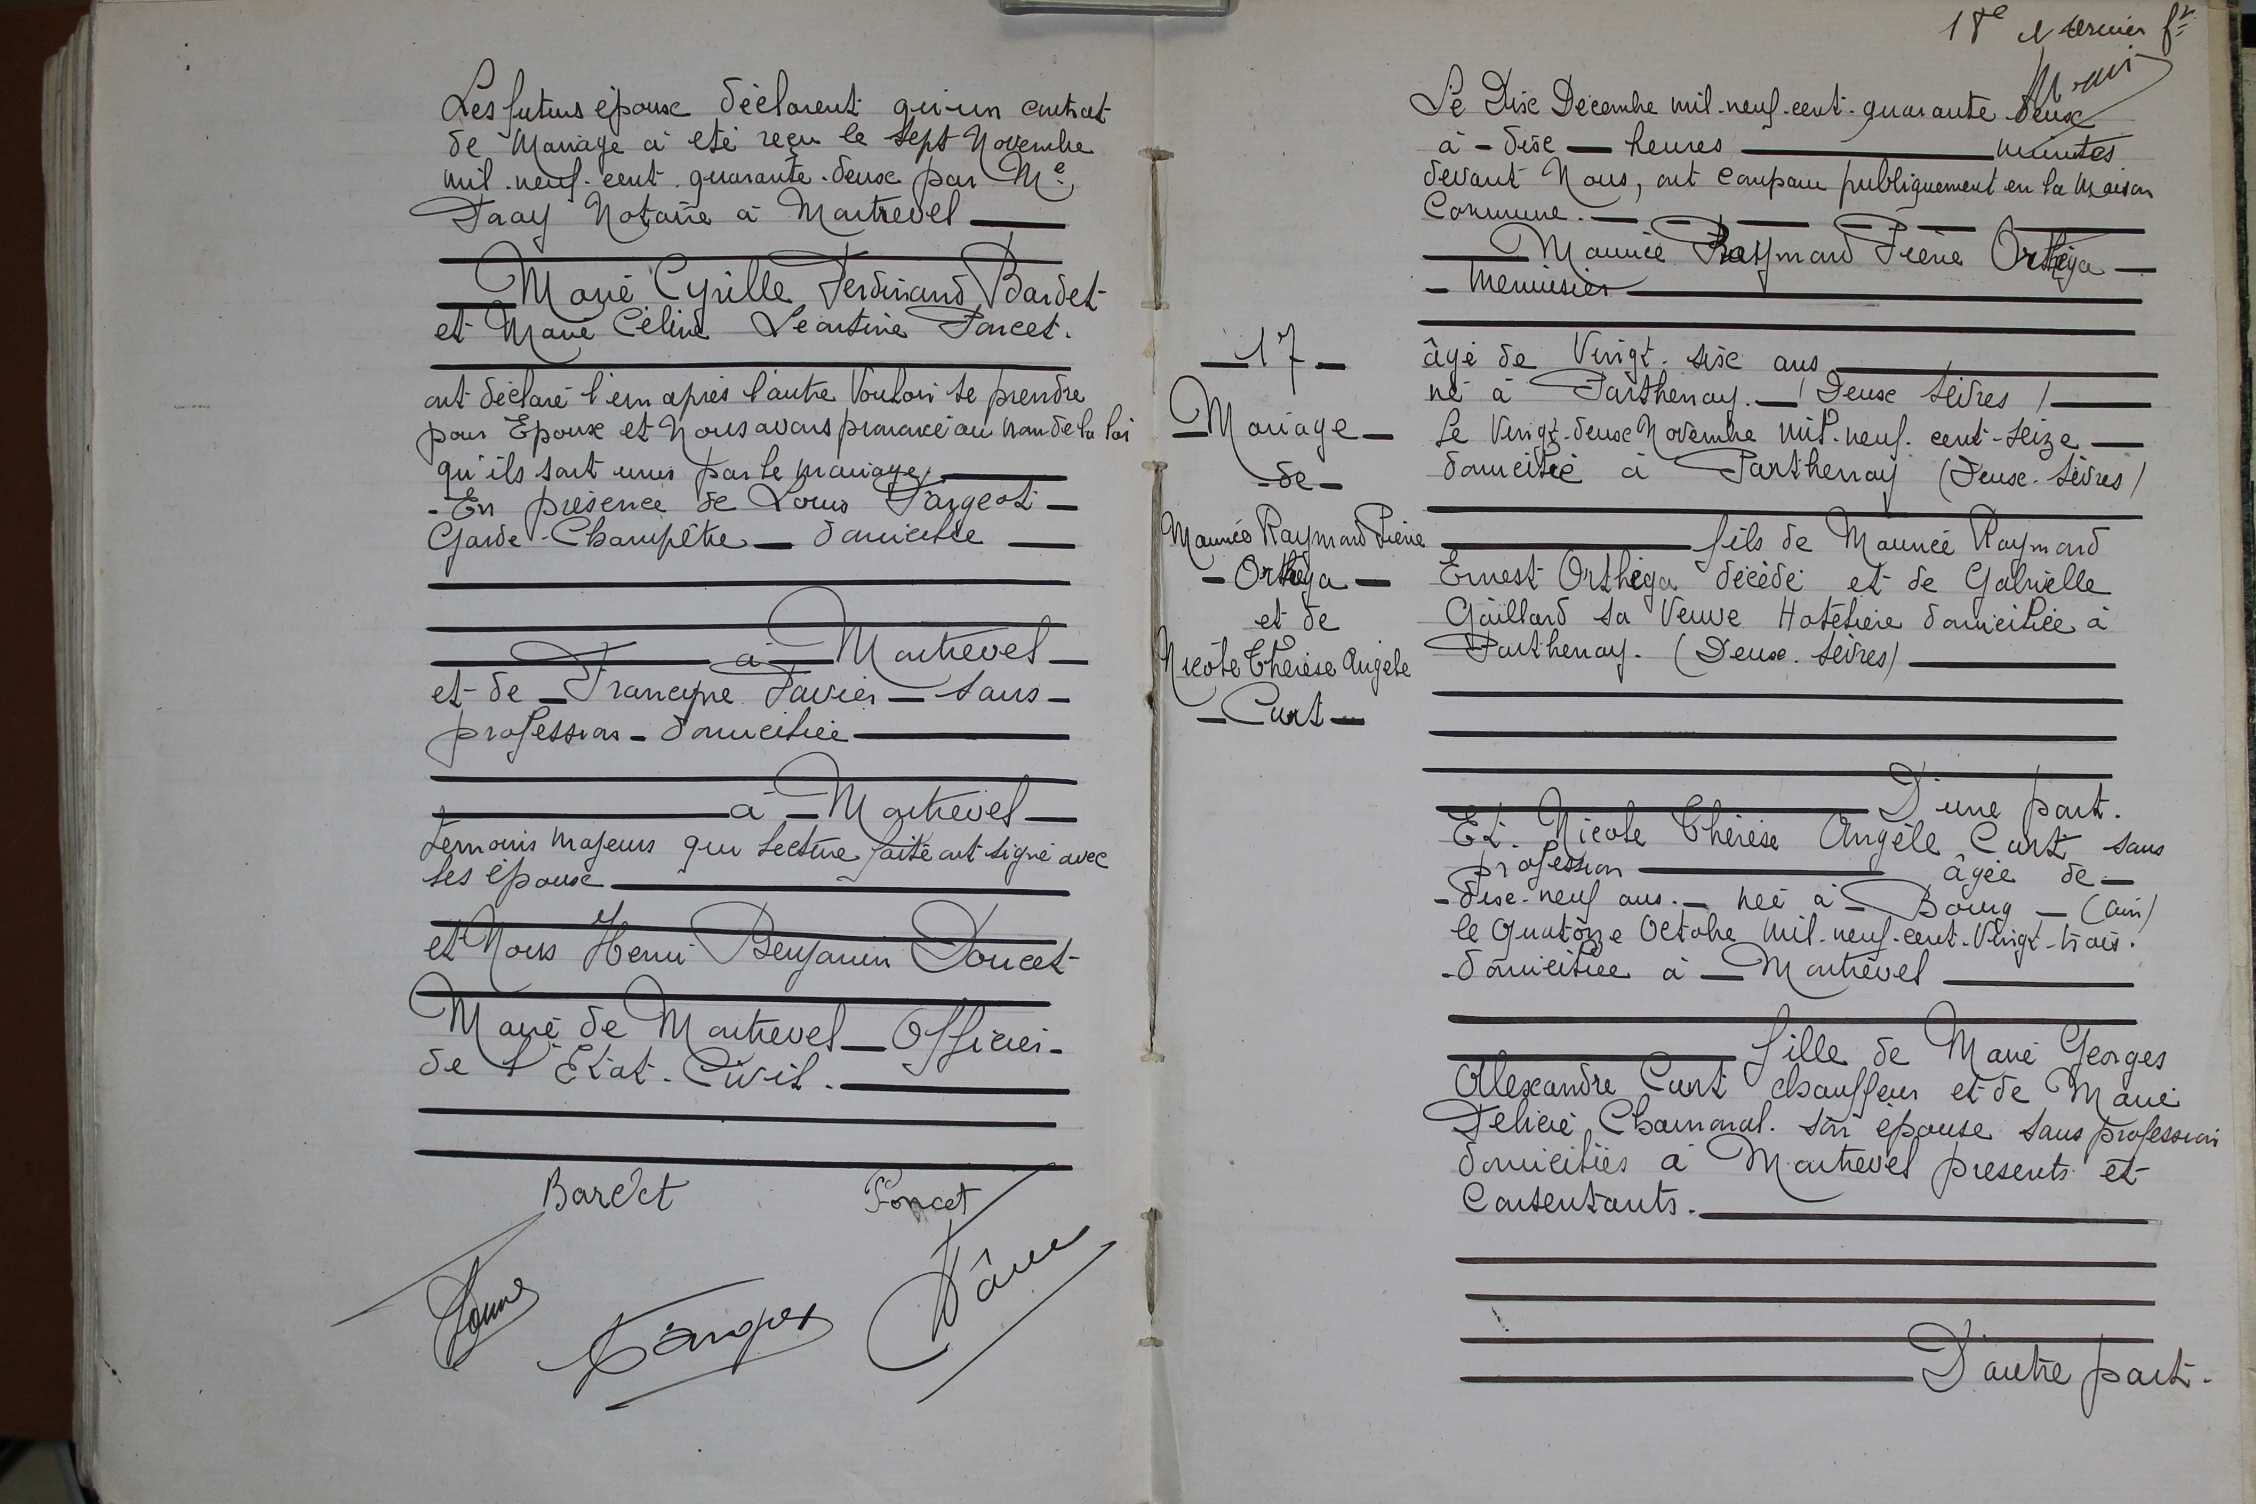 Les futurs époux déclarent qu'un contrat
de Mariage a été reçu le sept Novembre
mil-neuf-cent-quarante-deux par Me
Notaire à Montrevel
Marie Cyrille Ferdinand Bardet
et Marie Céline Léontine Poncet.
ont déclaré l'un après l'autre Vouloir se prendre
pour Epoux et Nous avons prononcé au nom de la loi
qu'ils sont unis par le mariage,
- En présence de Louis Pangeot
Garde-Champêtre domicilié
à Montrevel
et de Francyne Favier sans
profession - domiciliée
à Montrevel
témoins majeurs qui lecture faite ont signé avec
les époux
et Nous Henri Benjamin Doucet
Maire de Montrevel Officier
de l'Etat-Civil.
Bardet Poncet
18e et dernier ft
Le Dix Décembre mil-neuf-cent-quarante-deux
à - dix heures minutes
devant Nous, ont comparu publiquement en la Maison
Commune.
Maurice Raymond Pierre Orthéga
- Menuisier
âgé de Vingt-six ans
né à Parthenay. (Deux Sèvres)
le Vingt-deux Novembre mil-neuf-cent-seize
domicilié à Parthenay (Deux-Sèvres)
fils de Maurice Raymond
Ernest Orthéga décédé et de Gabrielle
Gaillard sa Veuve Hôtelière domiciliée à
Parthenay. (Deux-Sèvres)
D'une part.
Et - Nicole Thérèse Angèle Curt sans
profession âgée de
- dix-neuf ans. née à Bourg (Ain)
le Quatorze Octobre mil-neuf-cent-Vingt-trois.
- domiciliée à Montrevel
fille de Marie Georges
Alexandre Curt chauffeur et de Marie
Félicie Chamonal son épouse sans profession
domiciliés à Montrevel présents et
Consentants.
D'autre part.
17
Mariage
de
Maurice Raymond Pierre
Orthéga
et de
Nicole Thérèse Angèle
Curt